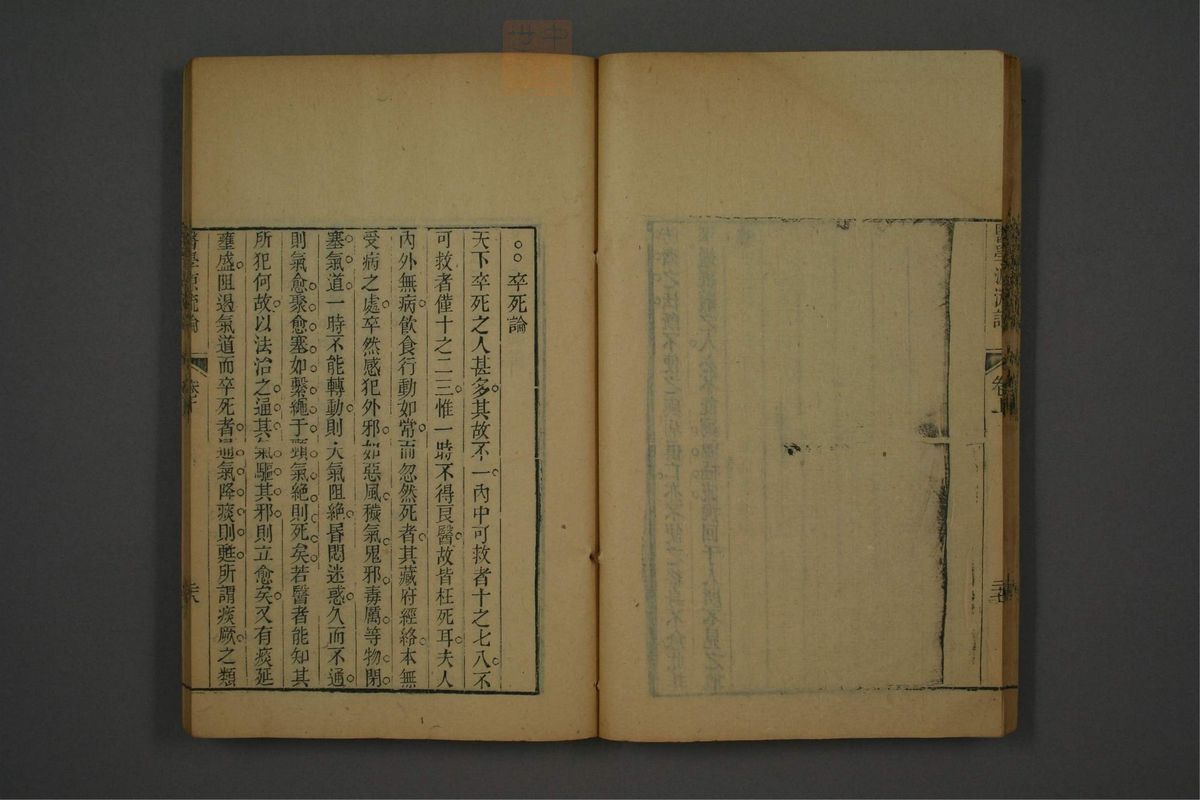 醫學源流論 卷上
卒死論
天下卒死之人甚多其故不一內中可救者十之七八不
可救者僅十之二三惟一時不得良醫故皆枉死耳夫人
內外無病飲食行動如常而忽然死者其藏府經絡本無
受病之處卒然感犯外邪如惡風穢氣鬼邪毒厲等物閉
塞氣道一時不能轉動則大氣阻絕昏悶迷惑久而不通
則氣愈聚愈塞如繫繩于頸氣絕則死矣若醫者能知其
所犯何故以法治之通其氣驅其邪則立愈矣又有痰涎
壅盛阻遏氣道而卒死者通氣降痰則甦所謂痰厥之類
醫學源流論